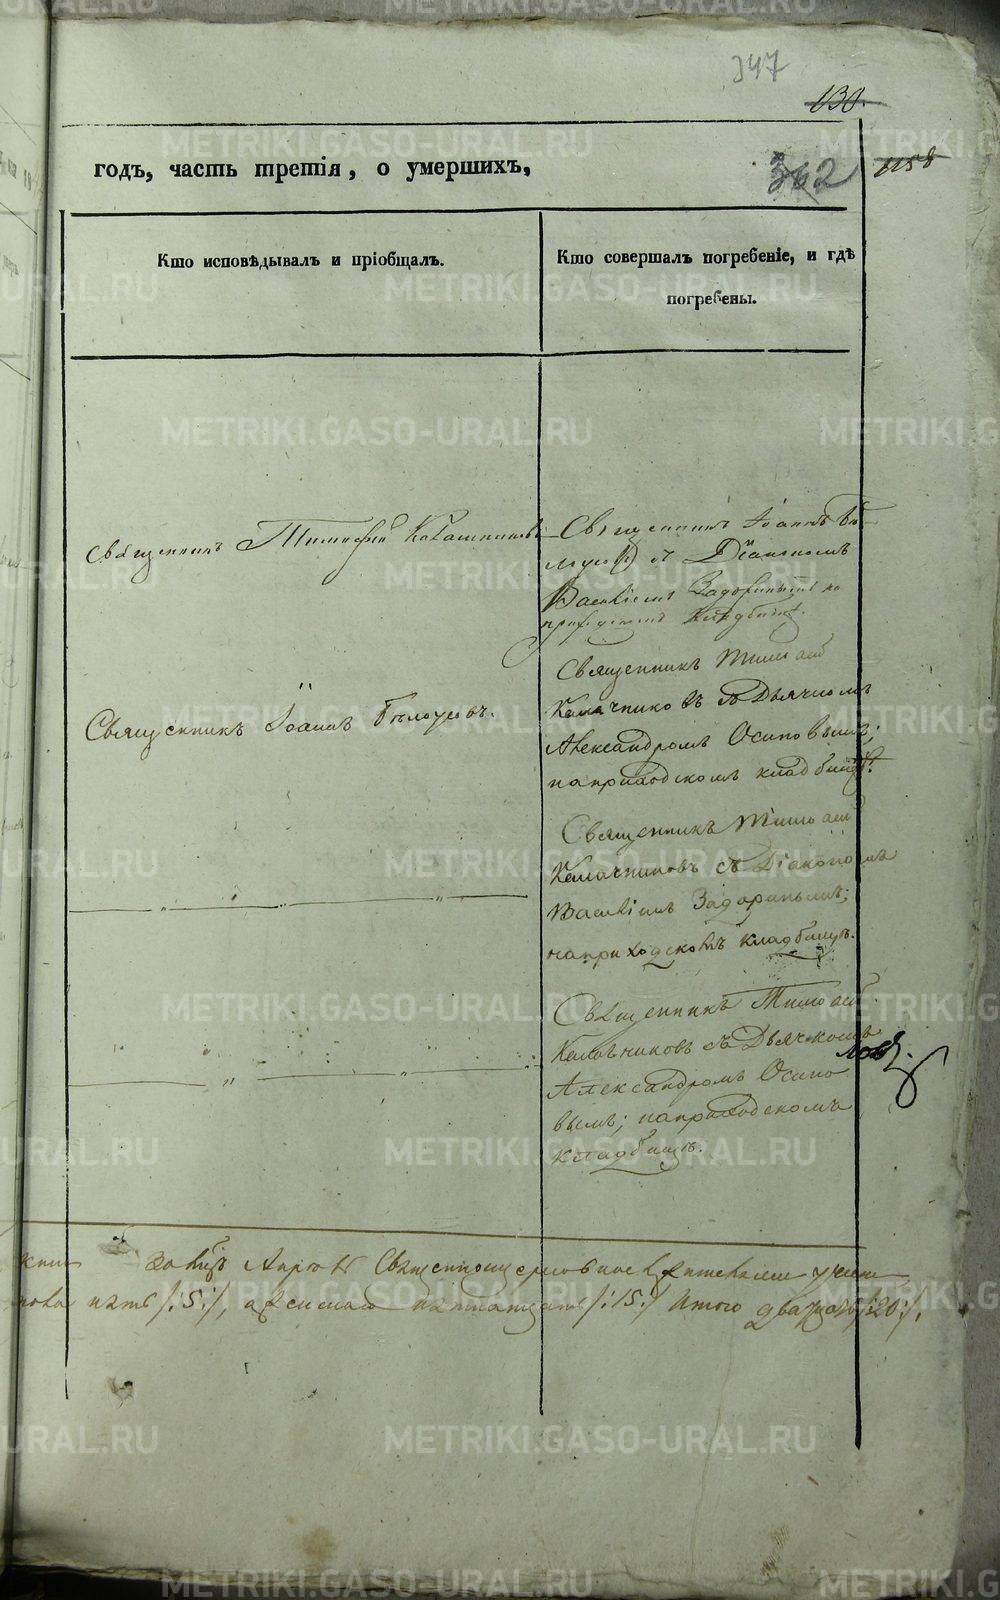 347
130.
годъ, часть третія, о умершихъ,
362
1158
Кто исповѣдывалъ и пріобщалъ.
Кто совершалъ погребеніе, и гдѣ
погребены.
Священникъ Тимофей Калашниковъ
Священникъ Іоаннъ Бѣ-
лоусов съ Діакономъ
Василіемъ Задоринымъ на
приходскомъ кладбищѣ.
Священникъ Іоаннъ Бѣлоусовъ.
Священникъ Тимоѳей
Калачниковъ съ Дьячкомъ
Александромъ Осиповымъ;
наприходскомъ кладбищѣ.
Священникъ Тимоѳей
Калачниковъ съ Діакономъ
Василіемъ Задоринымъ;
наприходскомъ кладбищѣ.
Священникъ Тимоѳей
Калачниковъ съ Дьячкомъ
Александромъ Осипо
вымъ; наприходскомъ
кладбищѣ.
Апрѣль
пять /:5:/, пятнатцать /:15:/ Итого двадцать /:20:/.
METRIKI.GASO-URAL.RU